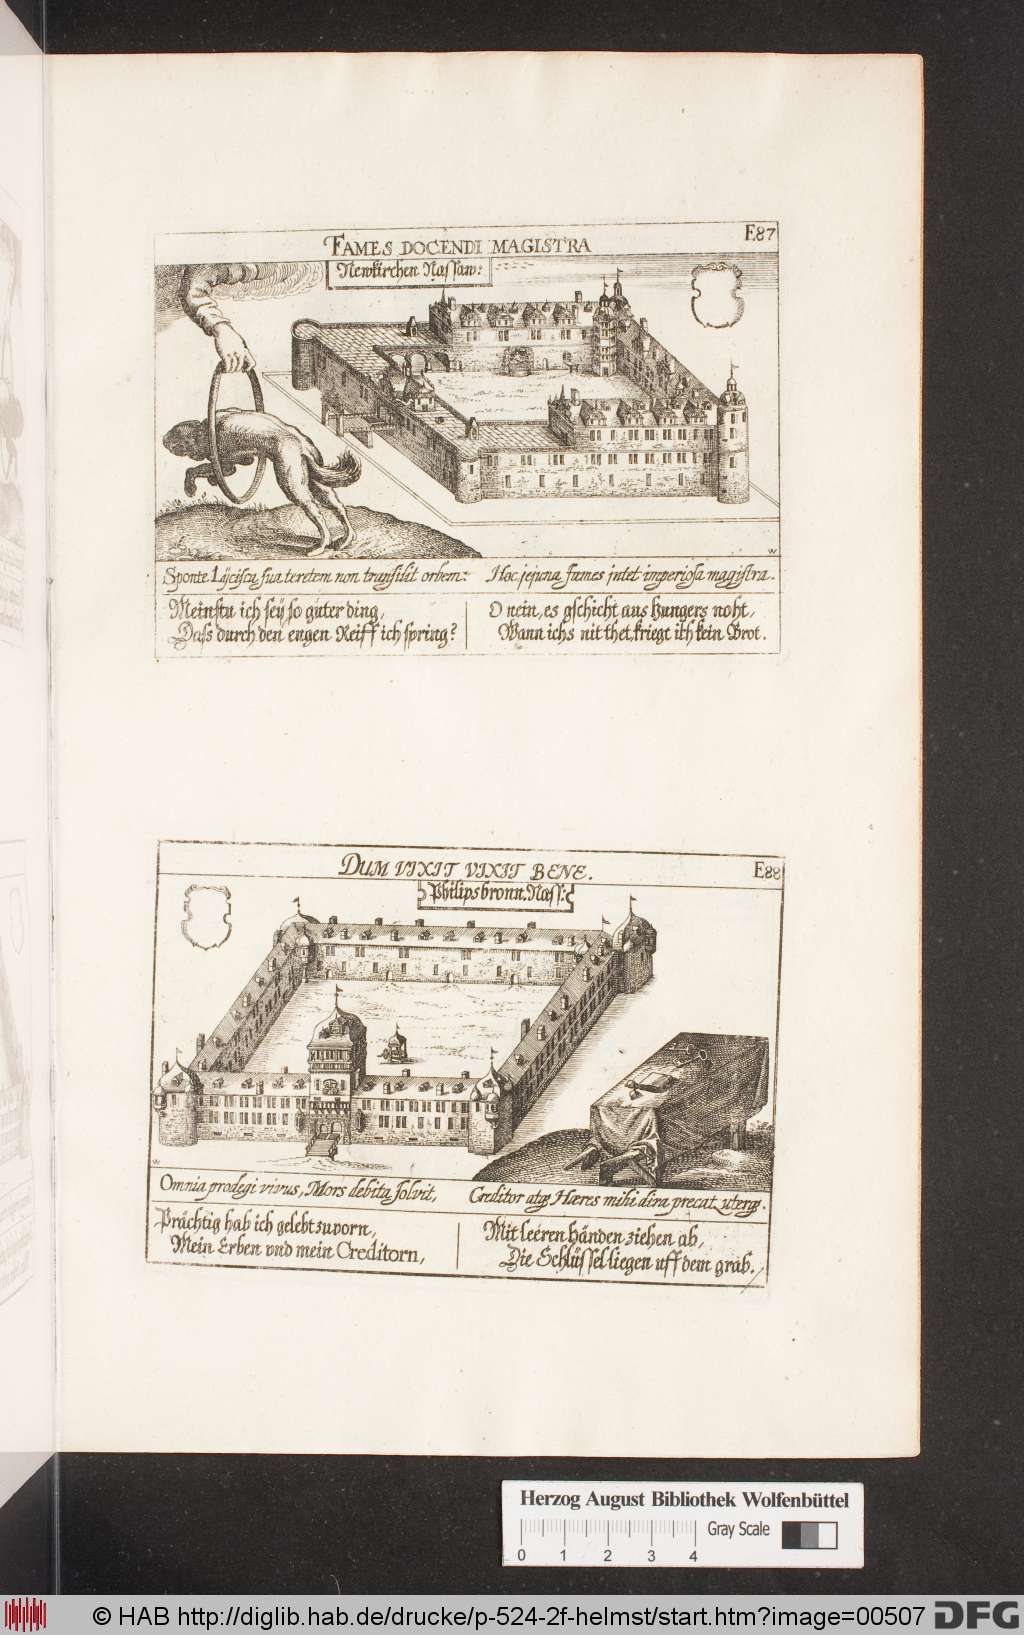 FAMES DOCENDI MAGISTRA
E87
Newkirchen Nassaw:
Sponte Lÿcisca sua teretem non transilit orbem:
Hoc jejuna fames jubet imperiosa magistra.
Meinstu ich seÿ so guter ding,
Dass durch den engen Reiff ich spring?
O nein, es gschicht aus hungers noht,
Wann ichs nit thet, kriegt ich kein Brot.
DUM VIXIT VIXIT BENE.
E88
Philipsbronn. Nass:
Omnia prodegi vivus, Mors debita solvit,
Creditor atqꝫ Hæres mihi dira precat uterqꝫ.
Prächtig hab ich gelebt zuvorn,
Mein Erben vnd mein Creditorn,
Mit leeren händen ziehen ab,
Die Schlüssel liegen uff dem grab.
Herzog August Bibliothek Wolfenbüttel
Gray Scale
0 1 2 3 4
© HAB http://diglib.hab.de/drucke/p-524-2f-helmst/start.htm?image=00507
DFG